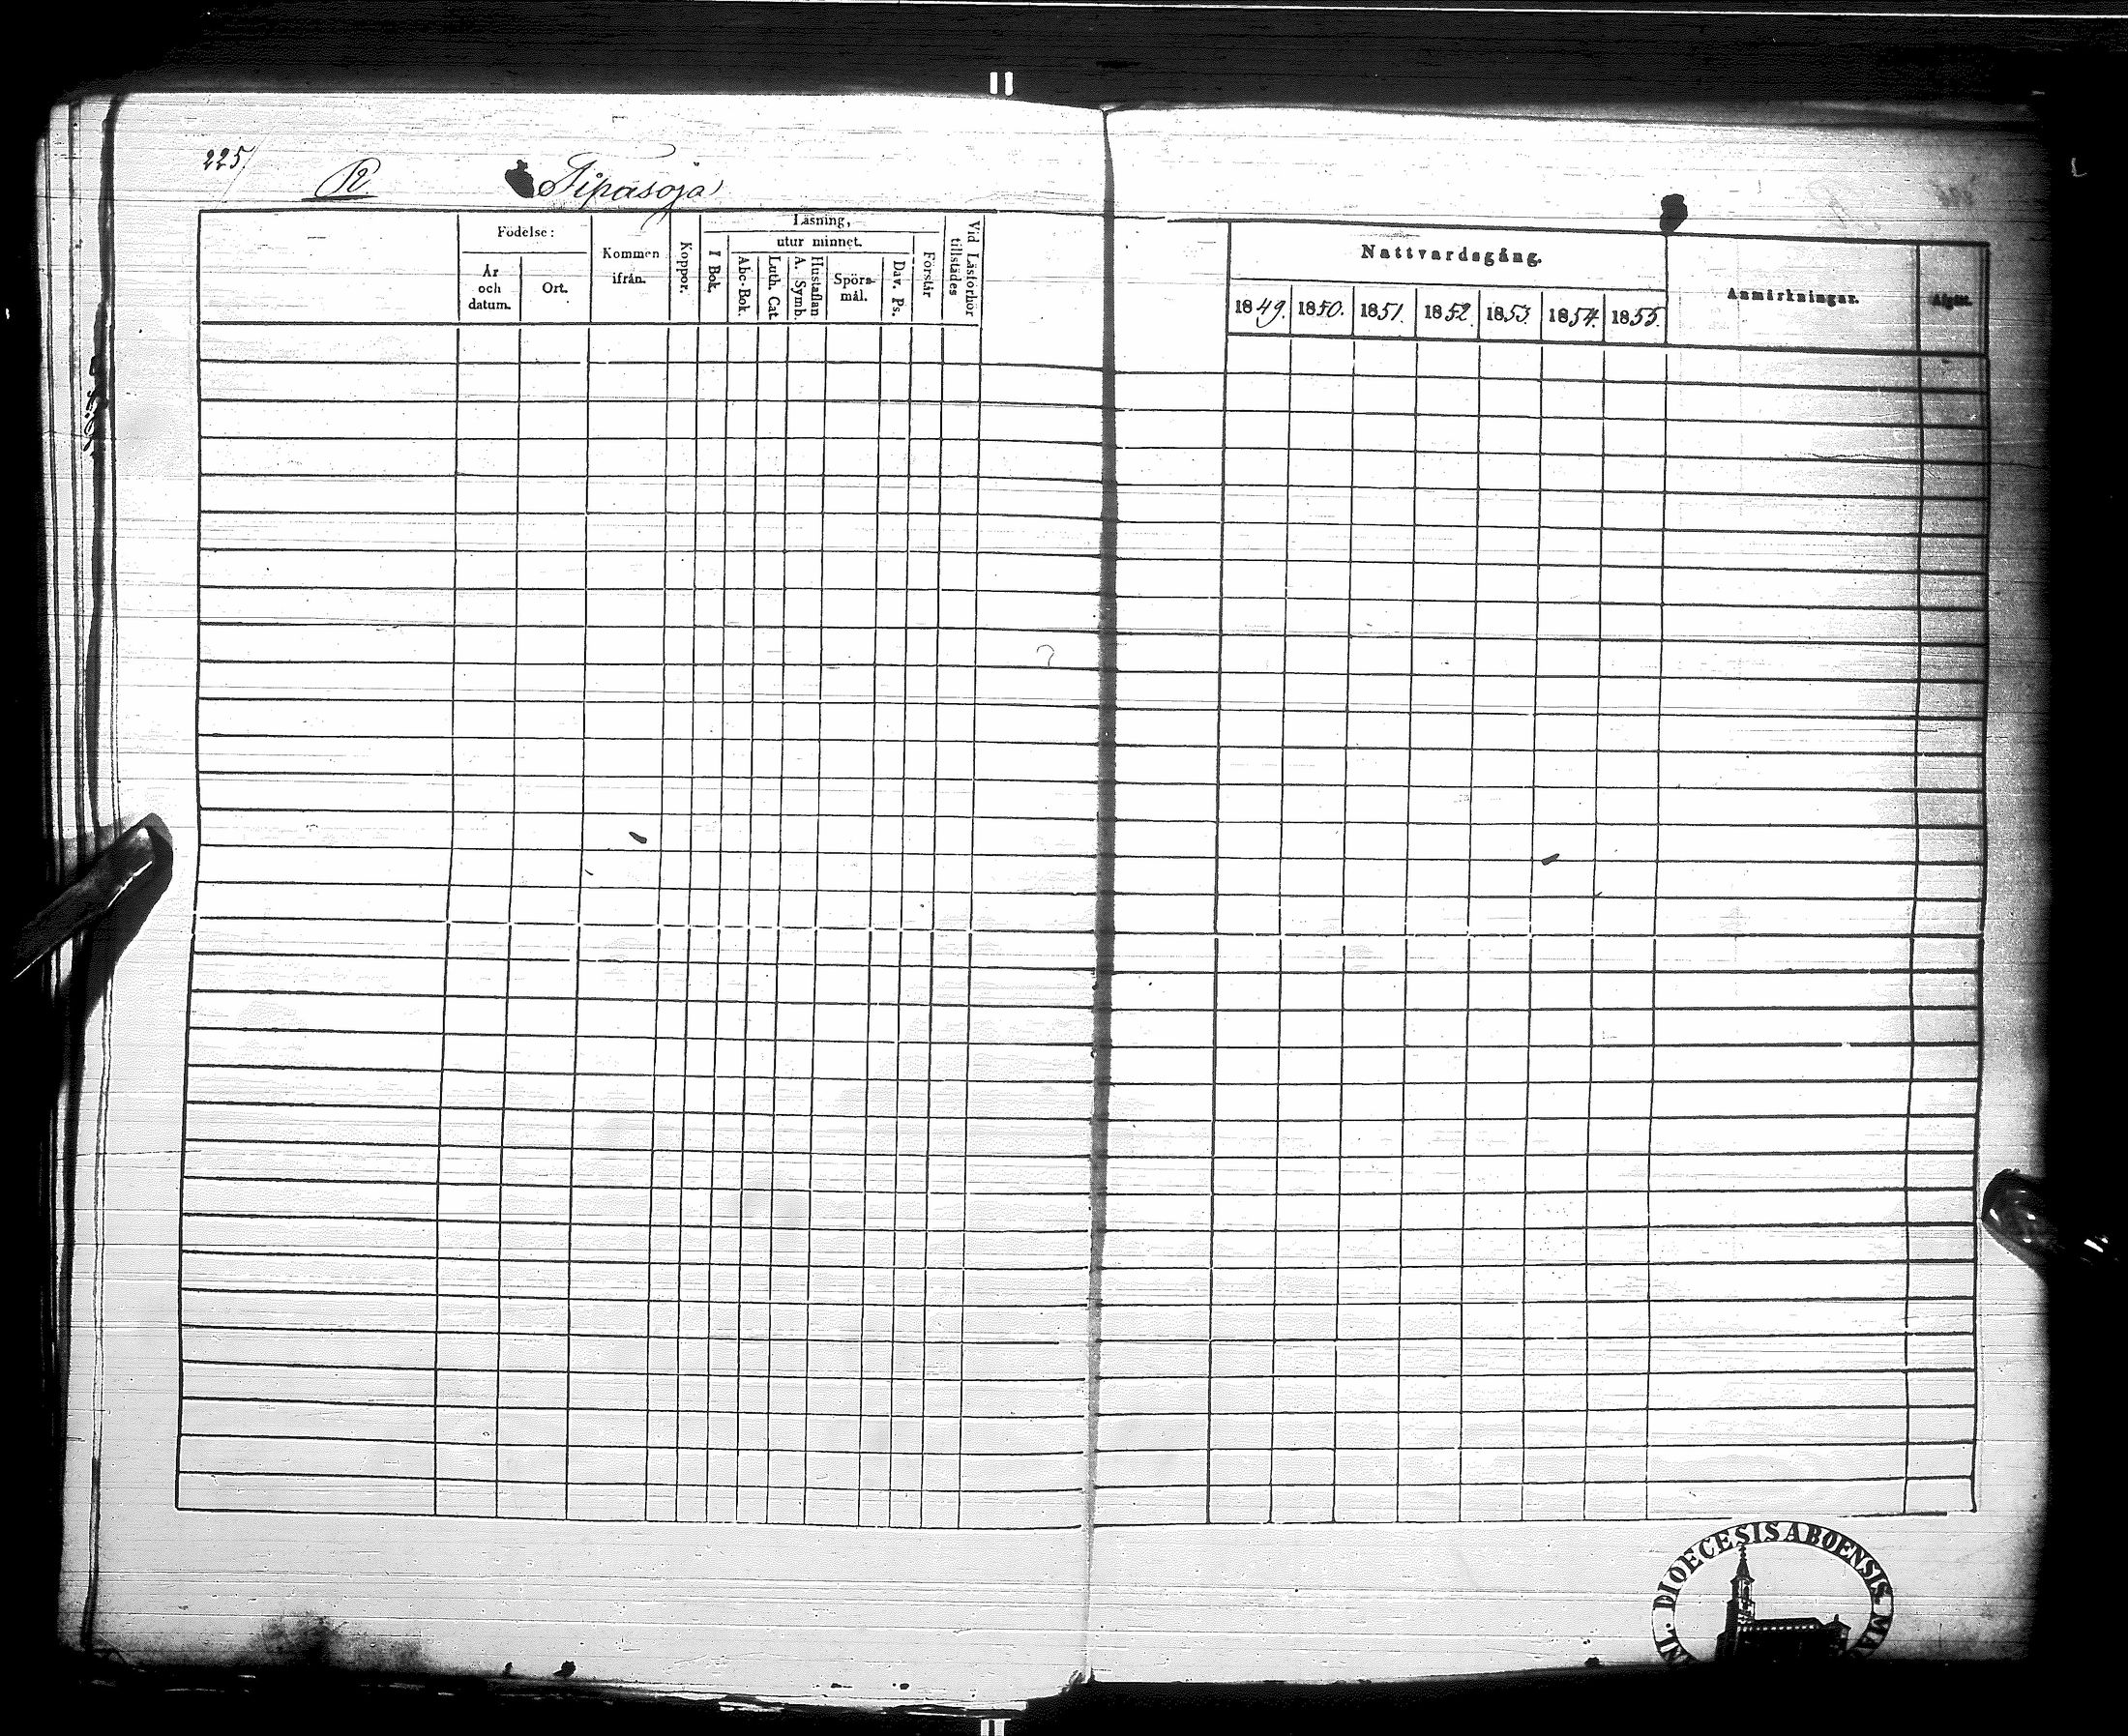 225/
R Tipasoja
Födelse:
År och datum.
Ort.
Kommen ifrån.
Koppor.
Läsning,
I Bok.
utur minnet.
Abc-Bok.
Luth. Cat.
Hustaflan A. Symb.
Spörs-mål.
Dav. Ps.
Förstår
Vid Läsförhör tillstädes
Nattvardsgång.
1849. 1850. 1851. 1852. 1853. 1854. 1855.
Anmärkningar.
Afgått.
DIOECESIS ABOENSIS